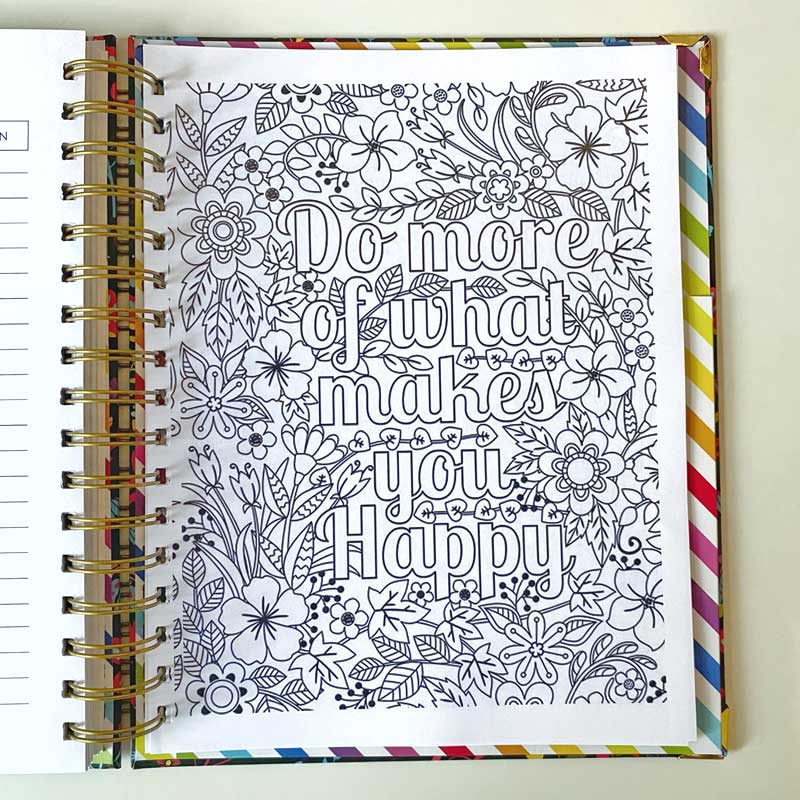 N
Do more
of what
makes
you
Happy